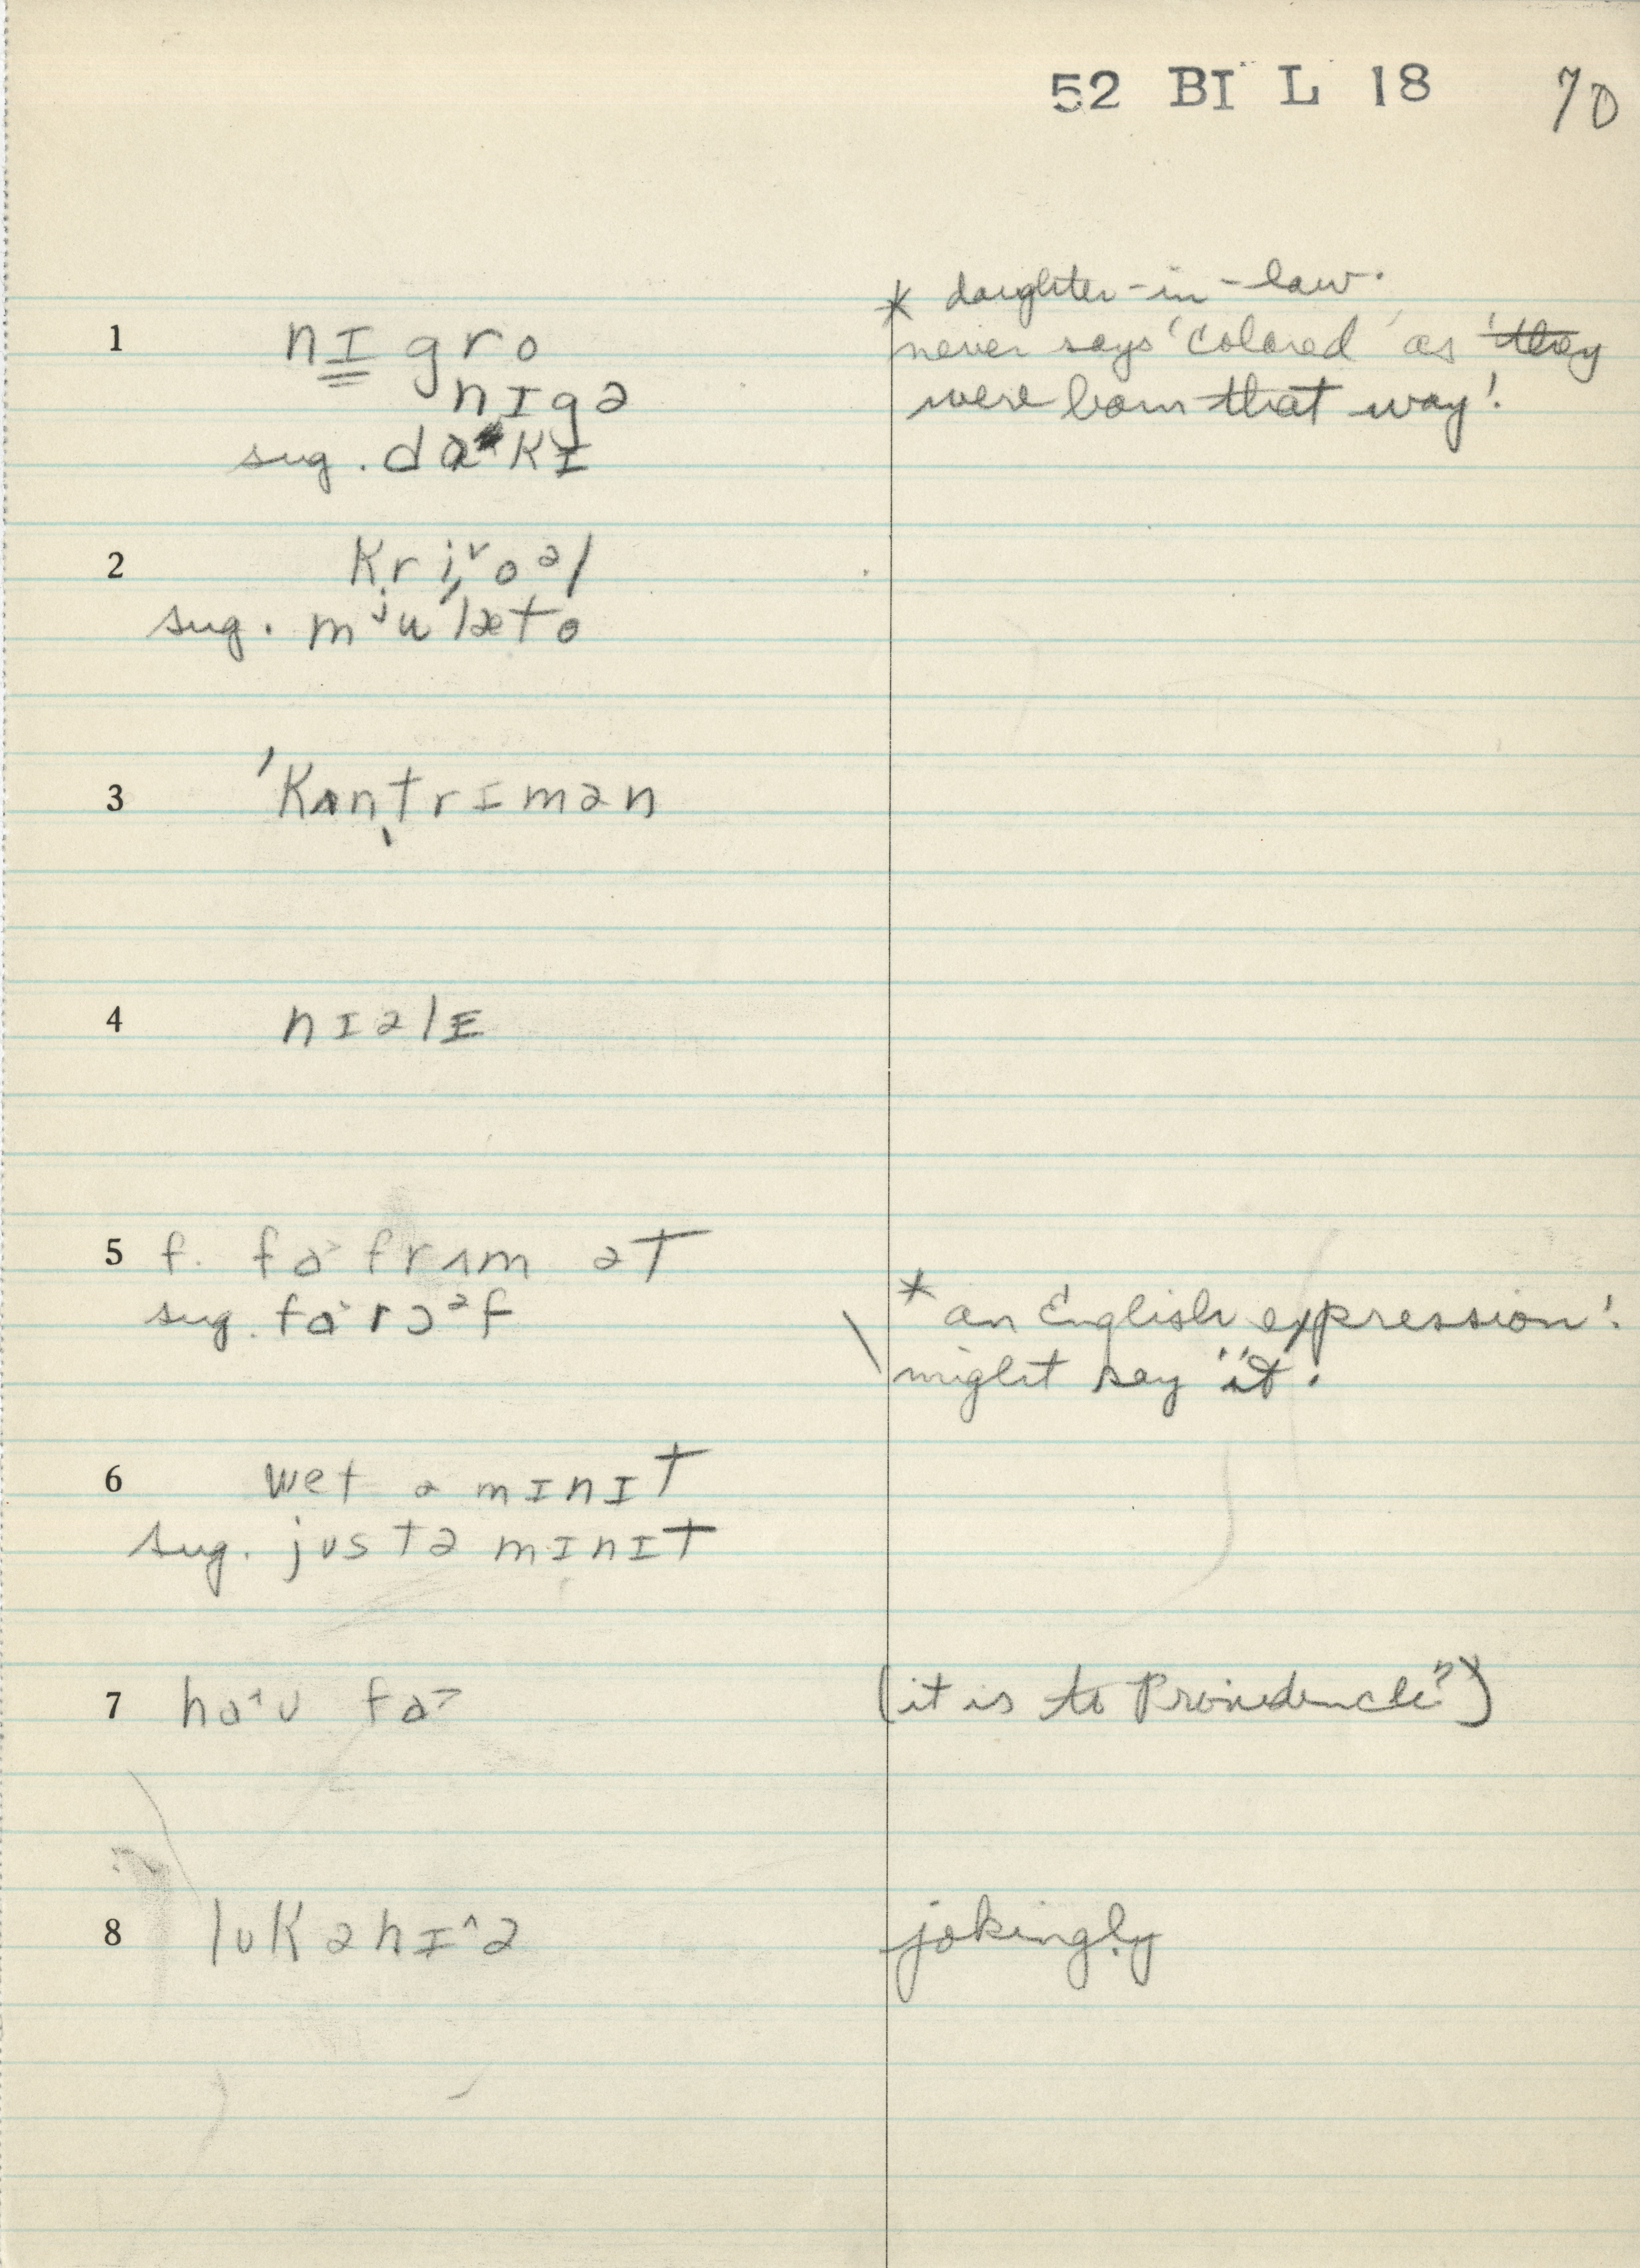 52 BI L 18 70
* daughter-in-law.
1 nɪgro never says 'colored' as 'they
nɪgə were born that way!
sug. daˑkɪ
2 kri˅oəl
sug. mʲuˈlæto
3 ˈkʌntrɪmən
4 nɪəlɛ
5 f. fa> frʌm ət
sug. fa> rɔəf * an English expression!
might say "it.
6 wet ə mɪnɪt
sug. jʊstə mɪnɪt
7 ha˂ʊ fa> (it is to Providence?")
8 lʊk ə hɪ^ə jokingly